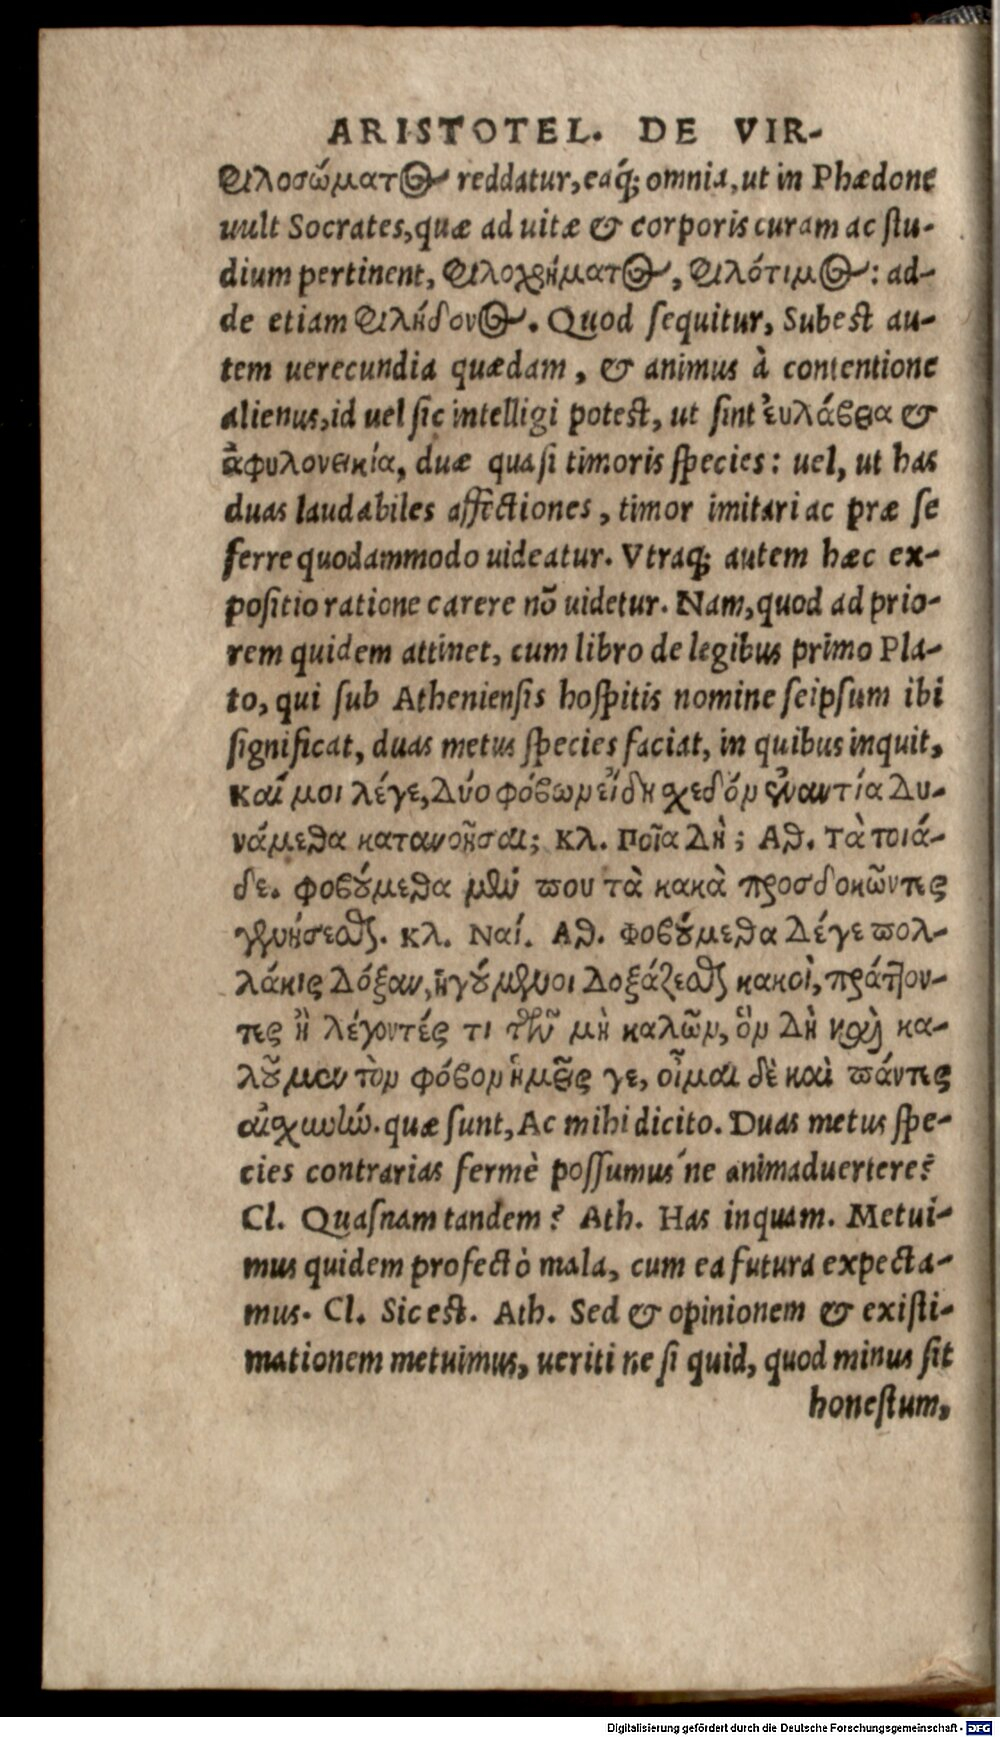 ARISTOTEL. DE VIR-
Φιλοσώματος reddatur, eaq́; omnia, ut in Phædone
uult Socrates, quæ ad uitæ & corporis curam ac stu-
dium pertinent, Φιλοχρήματος, Φιλότιμος: ad-
de etiam Φιλήδονος. Quod sequitur, Subest au-
tem uerecundia quædam, & animus à contentione
alienus, id uel sic intelligi potest, ut sint ἐυλάβεια &
ἀφιλονεικία, duæ quasi timoris species: uel, ut has
duas laudabiles affectiones, timor imitari ac præ se
ferre quodammodo uideatur. Vtraq; autem hæc ex-
positio ratione carere nō uidetur. Nam, quod ad prio-
rem quidem attinet, cum libro de legibus primo Pla-
to, qui sub Atheniensis hospitis nomine seipsum ibi
significat, duas metus species faciat, in quibus inquit,
καί μοι λέγε, Δύο φόβων εἴδη σχεδὸν ἐναντία Δυ-
νάμεθα κατανοῆσαι; κλ. Ποῖα Δὴ; Αθ. Τὰ τοιά-
δε. φοβούμεθα μὲν που τὰ κακὰ προσδοκῶντες
γενήσεσθαι. κλ. Ναί. Αθ. Φοβούμεθα Δέ γε πολ-
λάκις Δόξαν, ἡγούμενοι Δοξάζεσθαι κακοὶ, πράττον-
τες ἢ λέγοντές τι τῶν μὴ καλῶν, ὃν Δὴ καὶ κα-
λοῦμεν τὸν φόβον ἡμεῖς γε, οἶμαι δὲ καὶ πάντες
αἰσχύνην. quæ sunt, Ac mihi dicito. Duas metus spe-
cies contrarias fermè possumus'ne animaduertere?
Cl. Quasnam tandem? Ath. Has inquam. Metui-
mus quidem profectò mala, cum ea futura expecta-
mus. Cl. Sic est. Ath. Sed & opinionem & existi-
mationem metuimus, ueriti ne si quid, quod minus sit
honestum,
Digitalisierung gefördert durch die Deutsche Forschungsgemeinschaft - DFG